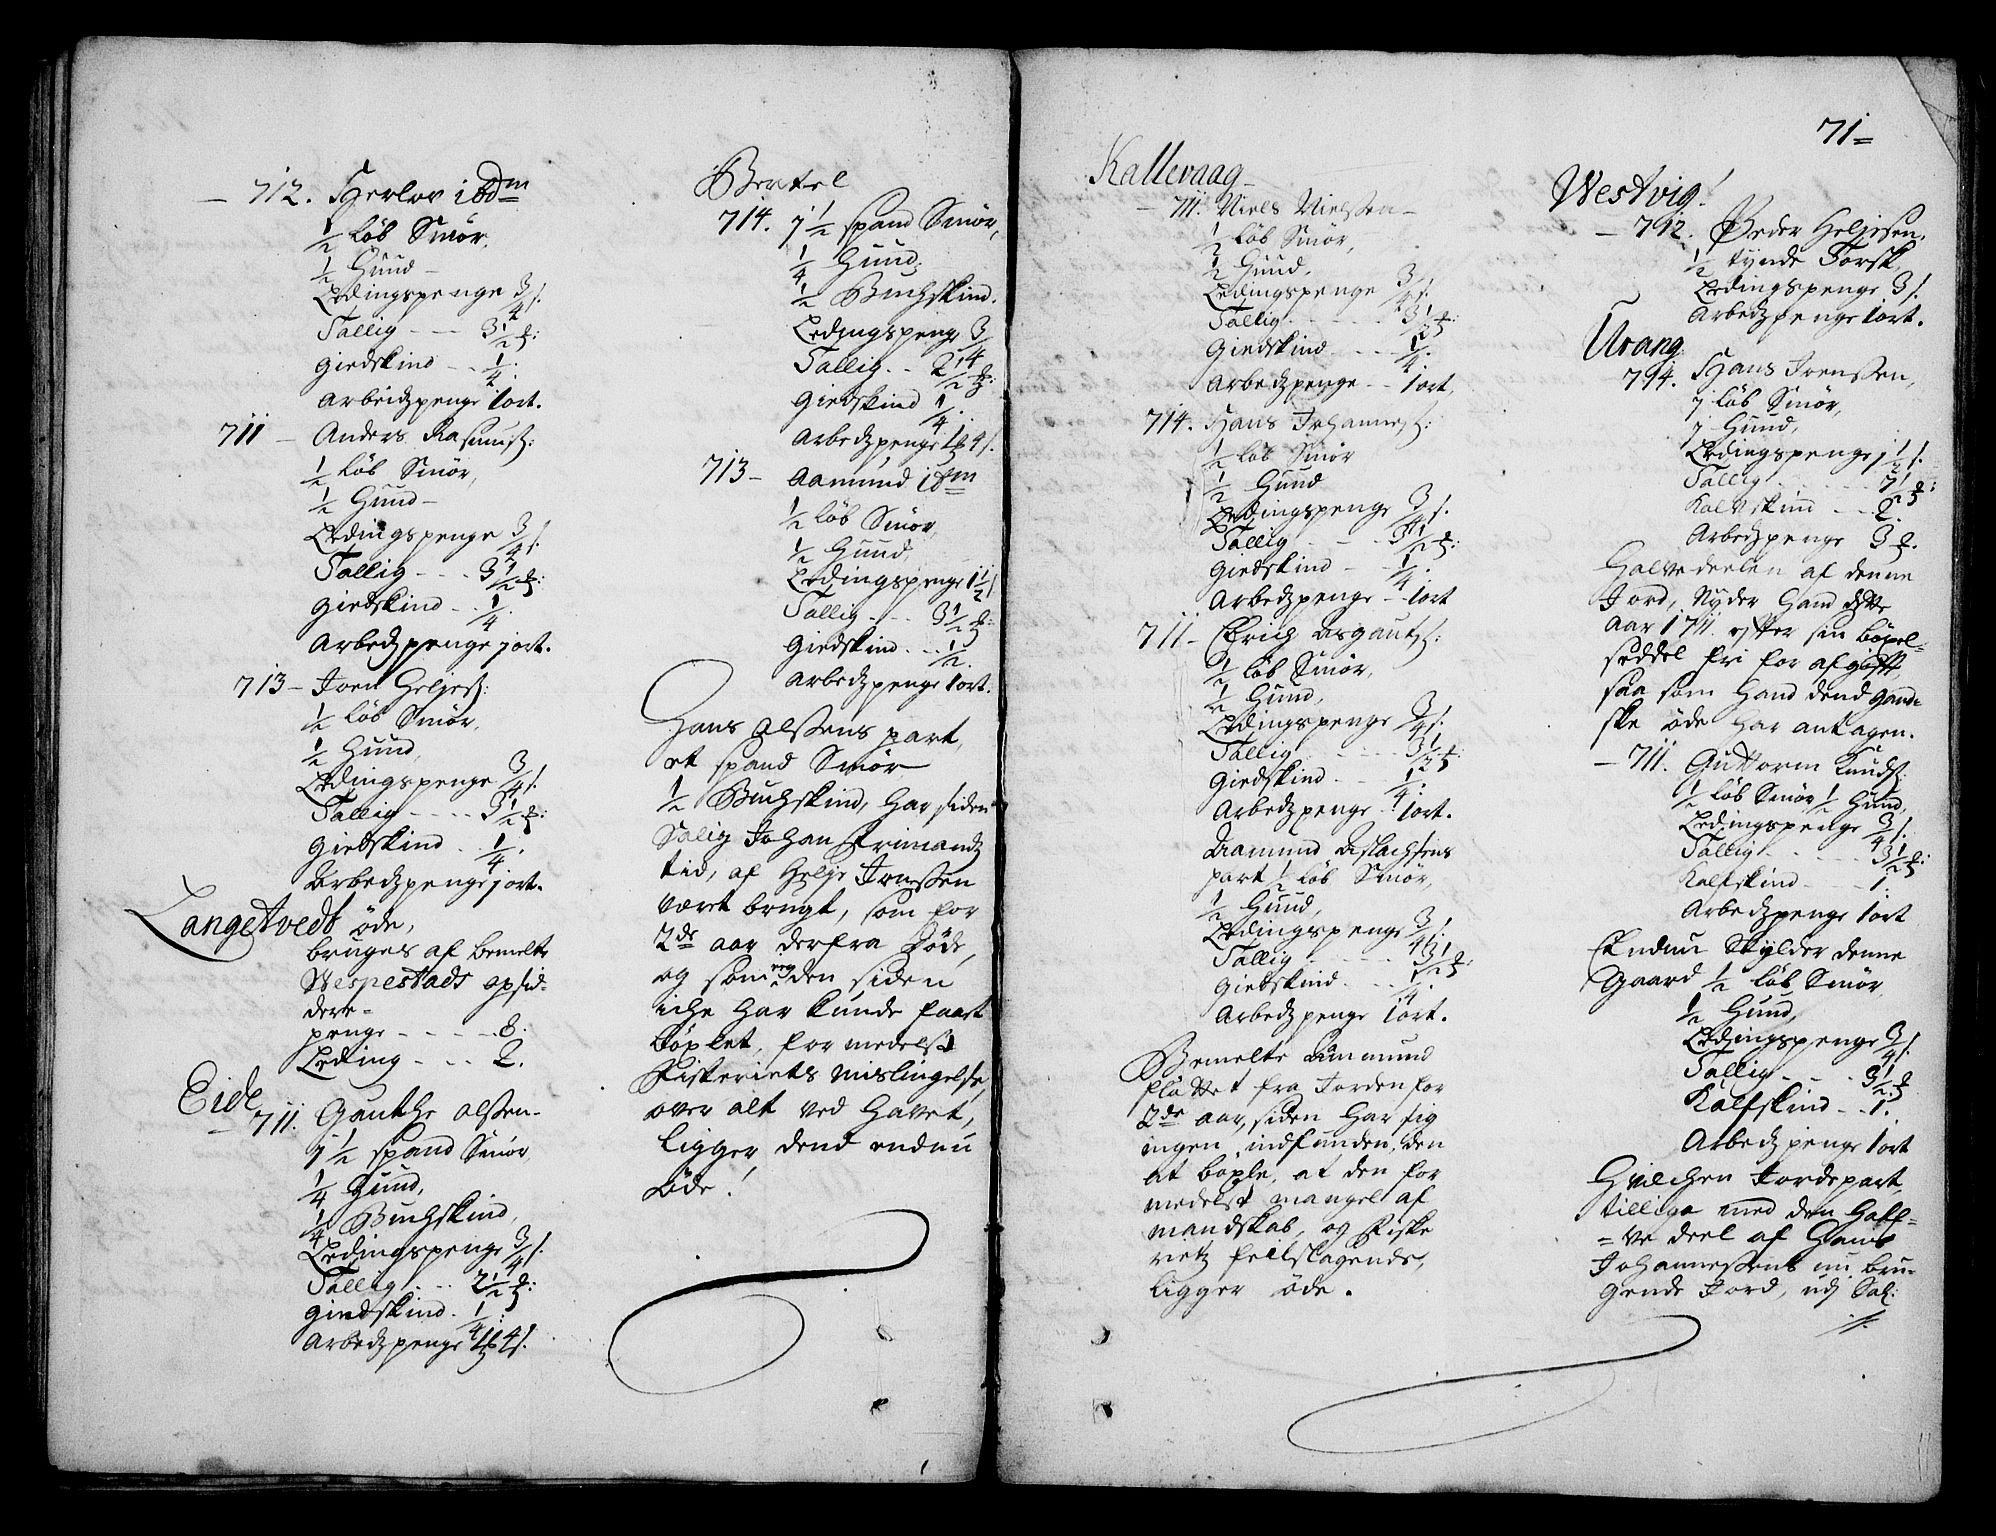 712. Herlov ibdm
1/2 Löb Smör,
1/2 Huud
Ledingspenge 3/4 s.
Tallig - - - 3 1/2 ℔:
Giedskind - - 1/4.
Arbeidzpenge 1 ort.
711 - Anders Rasmus:
1/2 Löb Smör,
1/2 Huud
Ledingspenge 3/4 s.
Tallig - - - 3 1/2 ℔:
Giedskind - - 1/4.
Arbedzpenge j ort.
713 - Joen Heljes:
1/2 Löb Smör,
1/2 Huud,
Ledingspenge 3/4 s.
Tallig - - - - 3 1/2 ℔:
Giedskind - - 1/4.
Arbedzpenge j ort.
Langetvedt öde,
bruges af bemelte
Wespestads opsid-
dere -
penge - - - - 8.
Leding - - - 2.
Eide
711. Gauthe Olssen -
1 1/2 spand Smör,
1/4 Huud,
1/4 Buchskind,
Ledingspenge 3/4 s.
Tallig - - - 2 1/2 ℔:
Giedskind - 1/4:
Arbedzpenge 1 ℔ 4 s.
Bertel
714. 1 1/2 spand Smör,
1/4 Huud,
1/2 Buchskind.
Ledingspenge 3/4
Tallig - - 2 1/2 ℔:
Giedskind 1/4.
Arbedzpenge 1 ℔ 4 s.
713 - Aamund ibm
1/2 Löb Smör,
1/2 Huud,
Ledingspenge 1 1/2 s
Tallig - - - 3 1/2 ℔:
Giedskind - - 1/2.
Arbedzpenge 1 ort.
Hans Olssens part,
et spand Smör
1/2 Buchskind, har siden
Salig Johan Frimandz
tid, af Helje Jenssen
været brugt, som for
2de aar derfra Döde,
og som ieg den siden
iche har kunde faaet
böxlet, formedelst
Fisteriets mislingelse,
over alt ved Havet,
ligger dend endnu
Öde!
71
Kallevaag
711. Niels Nielssen -
1/2 Löb Smör,
1/2 Huud,
Ledingspenge 3/4 s.
Tallig - - - - - 3 1/2 ℔:
Giedskind - - - 1/4.
Arbedzpenge - - 1 ort,
714. Hans Johannes:
1/2 Löb Smör
1/2 Huud
Ledingspenge 3/4 s.
Tallig - - - 3 1/2 ℔:
Giedskind - - 1/4.
Arbedzpenge - 1 ort
711 - Erich Asgautz:
1/2 Löb Smör,
1/2 Huud,
Ledingspenge 3/4 s.
Tallig - - - - 3 1/2 ℔:
Giedskind - - 1/4.
Arbedzpenge - 1 ort.
Aamund Aslachsens
part 1/2 Löb Smör,
1/2 Huud,
Ledingspenge 3/4 s.
Tallig - - - - - 3 1/2 ℔:
Giedskind - - - 1/4.
Arbedzpenge 1 ort.
Bemelte Aamund
flöttet fra Jorden for
2de aar, siden har sig
ingen indfunden, den
at böxle, at den for
medelst mangel af
mandskab, og Fiske
rietz feilslagende,
ligger öde.
Westvig!
712. Peder Heljesen,
1/2 tynde Torsk,
Ledingspenge 3 s.
Arbedzpenge 1 ort.
Urang
714. Hans Jrenssen,
7 Löb Smör,
7 Huud,
Ledingspenge j 1/2 s.
Tallig - - - - - 7 1/2 ℔:
Kalvskind - - 2.
Arbedzpenge 3 ℔.
Halvedeelen af denne
Jord, Nyder Hand dette
Aar 1711. efter sin böxel-
seddel fri for afgift,
saa som Hand dend gand-
ske öde har antagen.
711. Guttorm Knuds:
1/2 Löb Smör 1/2 Huud,
Ledingspenge 3/4 s.
Tallig - - - - 3 1/2 ℔:
Kalfskind - - - 1.
Arbedzpenge 1 ort
Endnu Skylder denne
Gaard 1/2 Löb Smör,
1/2 Huud,
Ledingspenge 3/4 s.
Tallig - - - - 3 1/2 ℔
Kalfskind - - 1.
Arbedzpenge 1 ort
Hvilchen Jordepart,
tilliga med den Half-
=ve deel af Hans
Johannessens nu bru-
gende Jord, udj Sal: